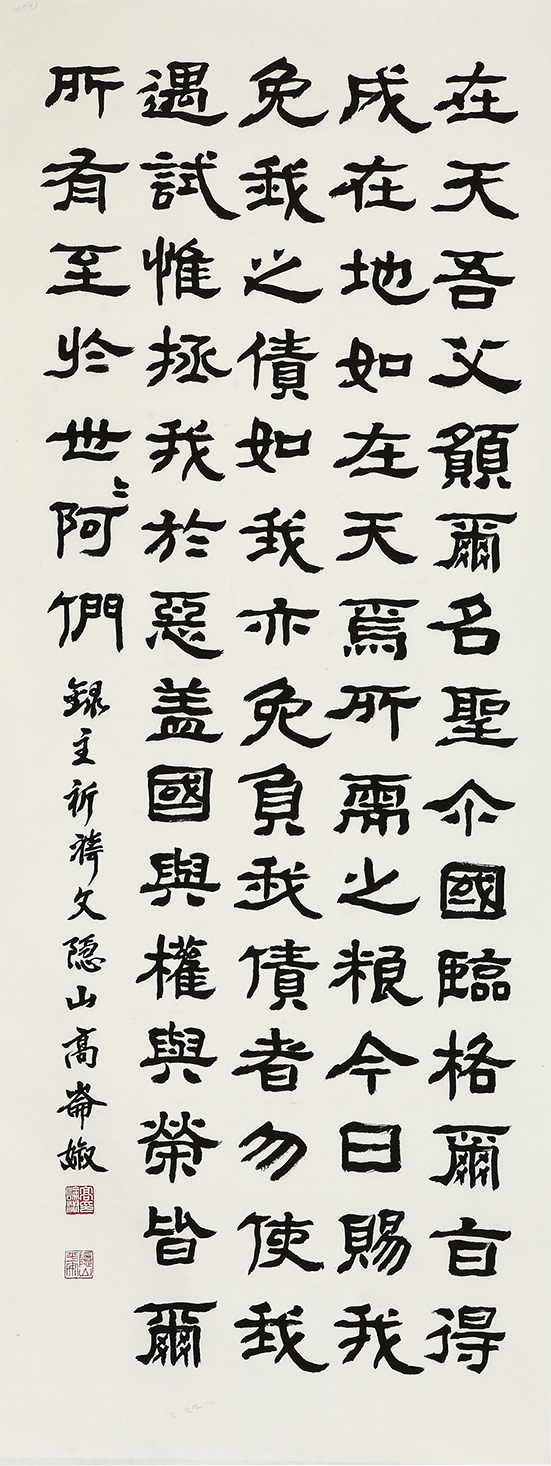 在天吾父願爾名聖尒國臨格爾旨得
成在地如在天焉所需之粮今日賜我
免我之債如我亦免負我債者勿使我
遇試惟拯我於惡盖國與權與榮皆爾
所有至於世〻阿們 録主祈禱文隐山高崙